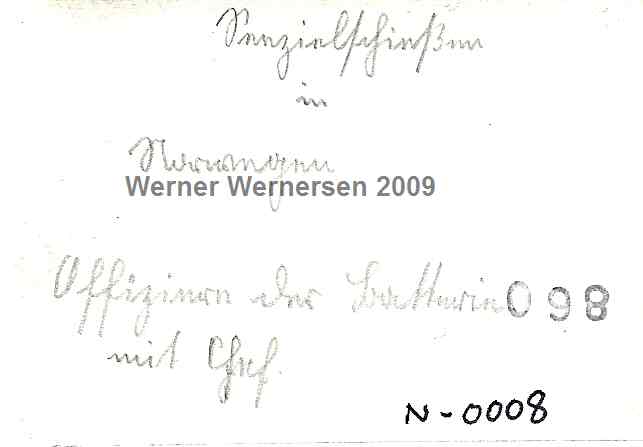 Seezielschießen
in
Norwegen
Werner Wernersen 2009
Offiziere der Batterie 098
mit Chef.
N-0008